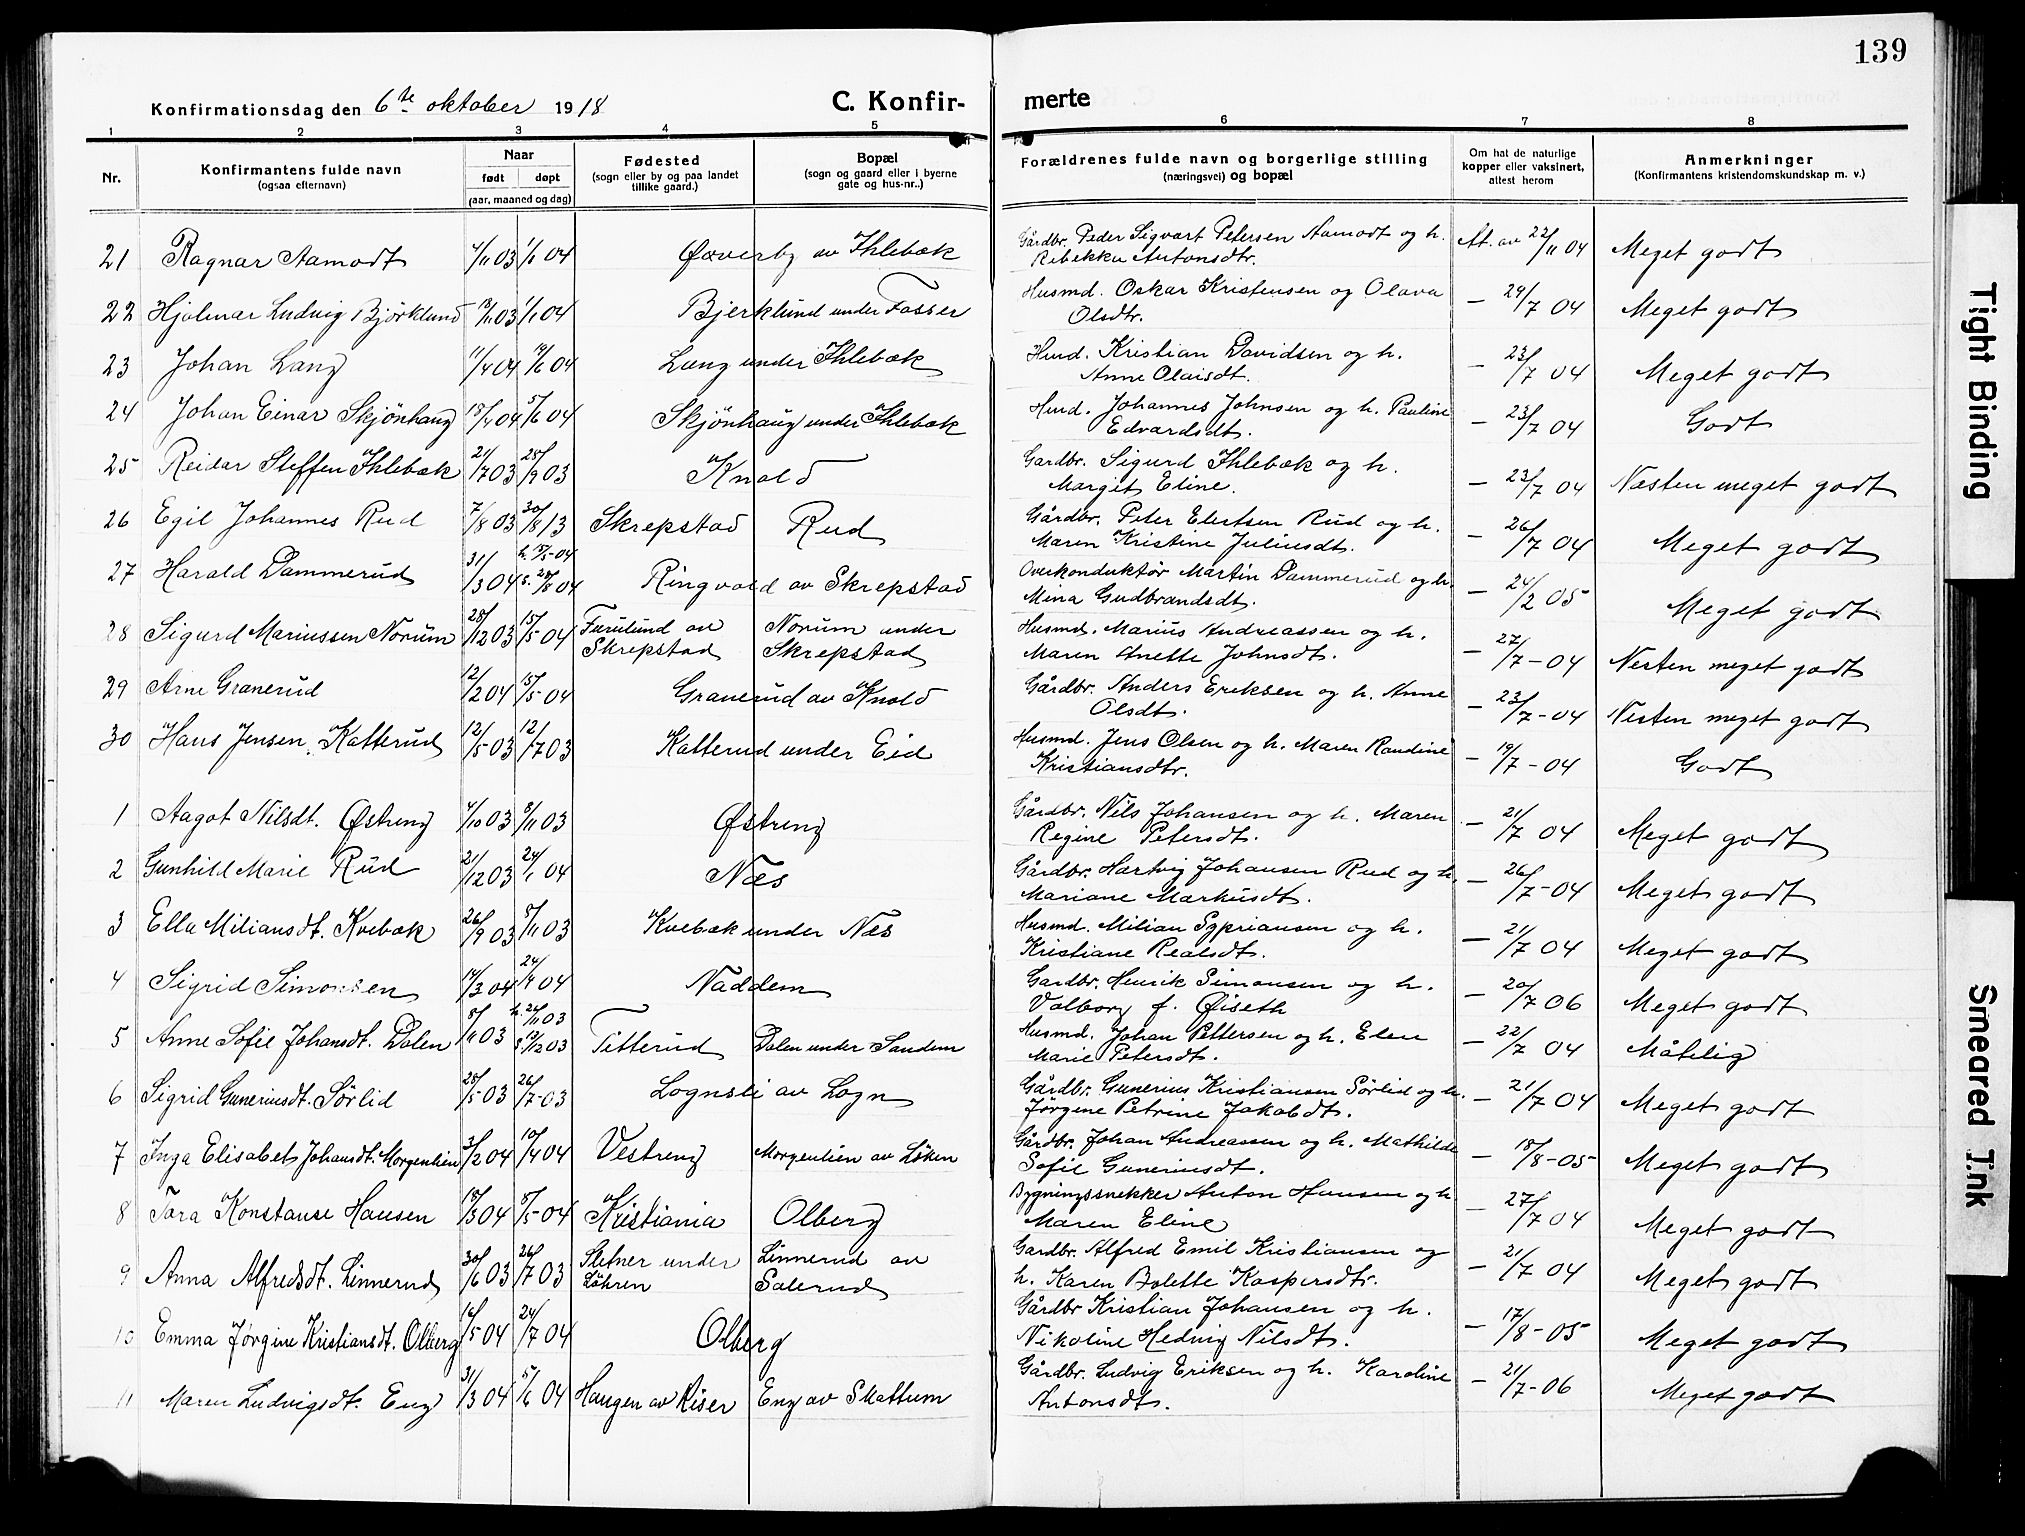 139
Konfirmationsdag den 6te oktober 1918 C. Konfir- merte
1 2 3 4 5 6 7 8
Nr.
Konfirmantens fulde navn
(ogsaa efternavn)
Naar
født døpt
(aar, maaned og dag)
Fødested
(sogn eller by og paa landet
tillike gaard.)
Bopæl
(sogn og gaard eller i byerne
gate og hus-nr..)
Forældrenes fulde navn og borgerlige stilling
(næringsvei) og bopæl
Om hat de naturlige
kopper eller vaksinert,
attest herom
Anmerkninger
(Konfirmantens kristendomskundskap m. v.)
21 Ragnar Aamodt 4/11 03 1/1 04 Øverby av Ihlebæk Gårdbr. Peder Sigvart Petersen Aamodt og h. At. av 22/11 04 Meget godt
Rebekka Antonsdtr.
22 Hjalmar Ludvig Bjørklund 1/1 04 Bjerklund under Fosser Husmd. Oskar Kristensen og Olava — 29/7 04 Meget godt
Olsdtr.
23 Johan Lang 11/4 04 19/6 04 Lang under Ihlebæk Husd. Kristian Davidsen og h. — 23/7 04 Meget godt
Anne Olaisdt.
24 Johan Einar Skjönhaug 18/4 04 5/6 04 Skjönhaug under Ihlebæk Husd. Johannes Johnsen og h. Pauline — 23/7 04 Godt
Edvardsdt.
25 Reidar Steffen Ihlebæk 21/7 03 25/9 03 Knold Gardbr. Sigurd Ihlebæk og h. — 23/7 04 Næsten meget godt
Margit Eline.
26 Egil Johannes Rud 7/8 03 30/8 13 Skrepstad Rud Gårdbr. Peter Elertsen Rud og h. — 26/7 04 Meget godt
Maren Kristine Juliusdt.
27 Harald Dammerud 31/3 04 h. 15/5-04 s. 28/8 04 Ringvold av Skrepstad Overkonduktör Martin Dammerud og h. — 24/2 05 Meget godt
Mina Gudbrandsdt.
28 Sigurd Mariussen Norum 28/12 03 15/5 04 Furulund av Skrepstad Norum under Skrepstad Husmd. Marius Andreassen og h. — 27/7-04 Nesten meget godt
Maren Anette Johnsdt.
29 Arne Granerud 12/2 04 15/5 04 Granerud av Knold Gårdbr. Anders Eriksen og h. Anne — 23/7-04 Nesten meget godt
Olsdt.
30 Hans Jensen Katterud 12/5 03 12/7 03 Katterud under Eid Husmd. Jens Olsen og h. Maren Randine — 19/7-04 Godt
Kristiansdtr.
1 Aagot Nilsdt. Østreng 4/10 03 8/11 03 Østreng Gårdbr. Nils Johansen og h. Maren — 21/7 04 Meget godt
Regine Petersdt.
2 Gunhild Marie Rud 21/12 03 24/1 04 Næs Gårdbr. Hartvig Johansen Rud og h. — 26/7-04 Meget godt
Mariane Markusdt.
3 Ella Miliansdt. Kvebæk 26/9 03 8/11 03 Kvebæk under Næs Husmd. Milian Sypriansen og h. — 21/7 04 Meget godt
Kristiane Realsdt.
4 Sigrid Simonsen 14/3 04 24/4 04 Naddem Gardbr. Henrik Simonsen og h. — 20/7 06 Meget godt
Valborg f. Øiseth
5 Anne Sofie Johansdt. Dalen 8/11 03 h. 26/11 03 s. 13/12 03 Titterud Dalen under Sandem Husmd. Johan Pettersen og h. Elen — 22/7 04 Måtelig
Marie Petersdt.
6 Sigrid Gunerinsdt. Sørlid 25/5-03 26/7-03 Lognsli av Logn Gårdbr. Gunerius Kristiansen Sørlid og h. — 21/7 04 Meget godt
Jørgine Petrine Jakobdt.
7 Inga Elisabet Johansdt. Morgenlien 3/2 04 10/4 04 Vestreng Morgenlien av Löken Gårdbr. Johan Andreassen og h. Mathilde — 18/8-05 Meget godt
Sofie Gunerinsdt.
8 Tora Konstanse Hansen 18/3 04 8/5-04 Kristiania Olberg Bygningssnekker Anton Hansen og h. — 27/7 04 Meget godt
Maren Eline
9 Anna Alfredsdt. Linnerud 30/6 03 26/7 03 Sletner under Lökren Linnerud av Salerud Gardbr. Alfred Emil Kristiansen og — 21/7 04 Meget godt
h. Karen Bolette Kaspersdtr.
10 Emma Jørgine Kristiansdt. Olberg 16/5 04 24/7 04 Olberg Gårdbr Kristian Johansen og h. — 17/8-05 Meget godt
Nikoline Hedvig Nilsdt.
11 Maren Ludvigsdt. Eng 31/3 04 5/6 04 Haugen av Riser Eng av Skattum Gårdbr. Ludvig Eriksen og h. Karoline — 21/7-06 Meget godt
Antonsdt.
Tight Binding
Smeared Ink